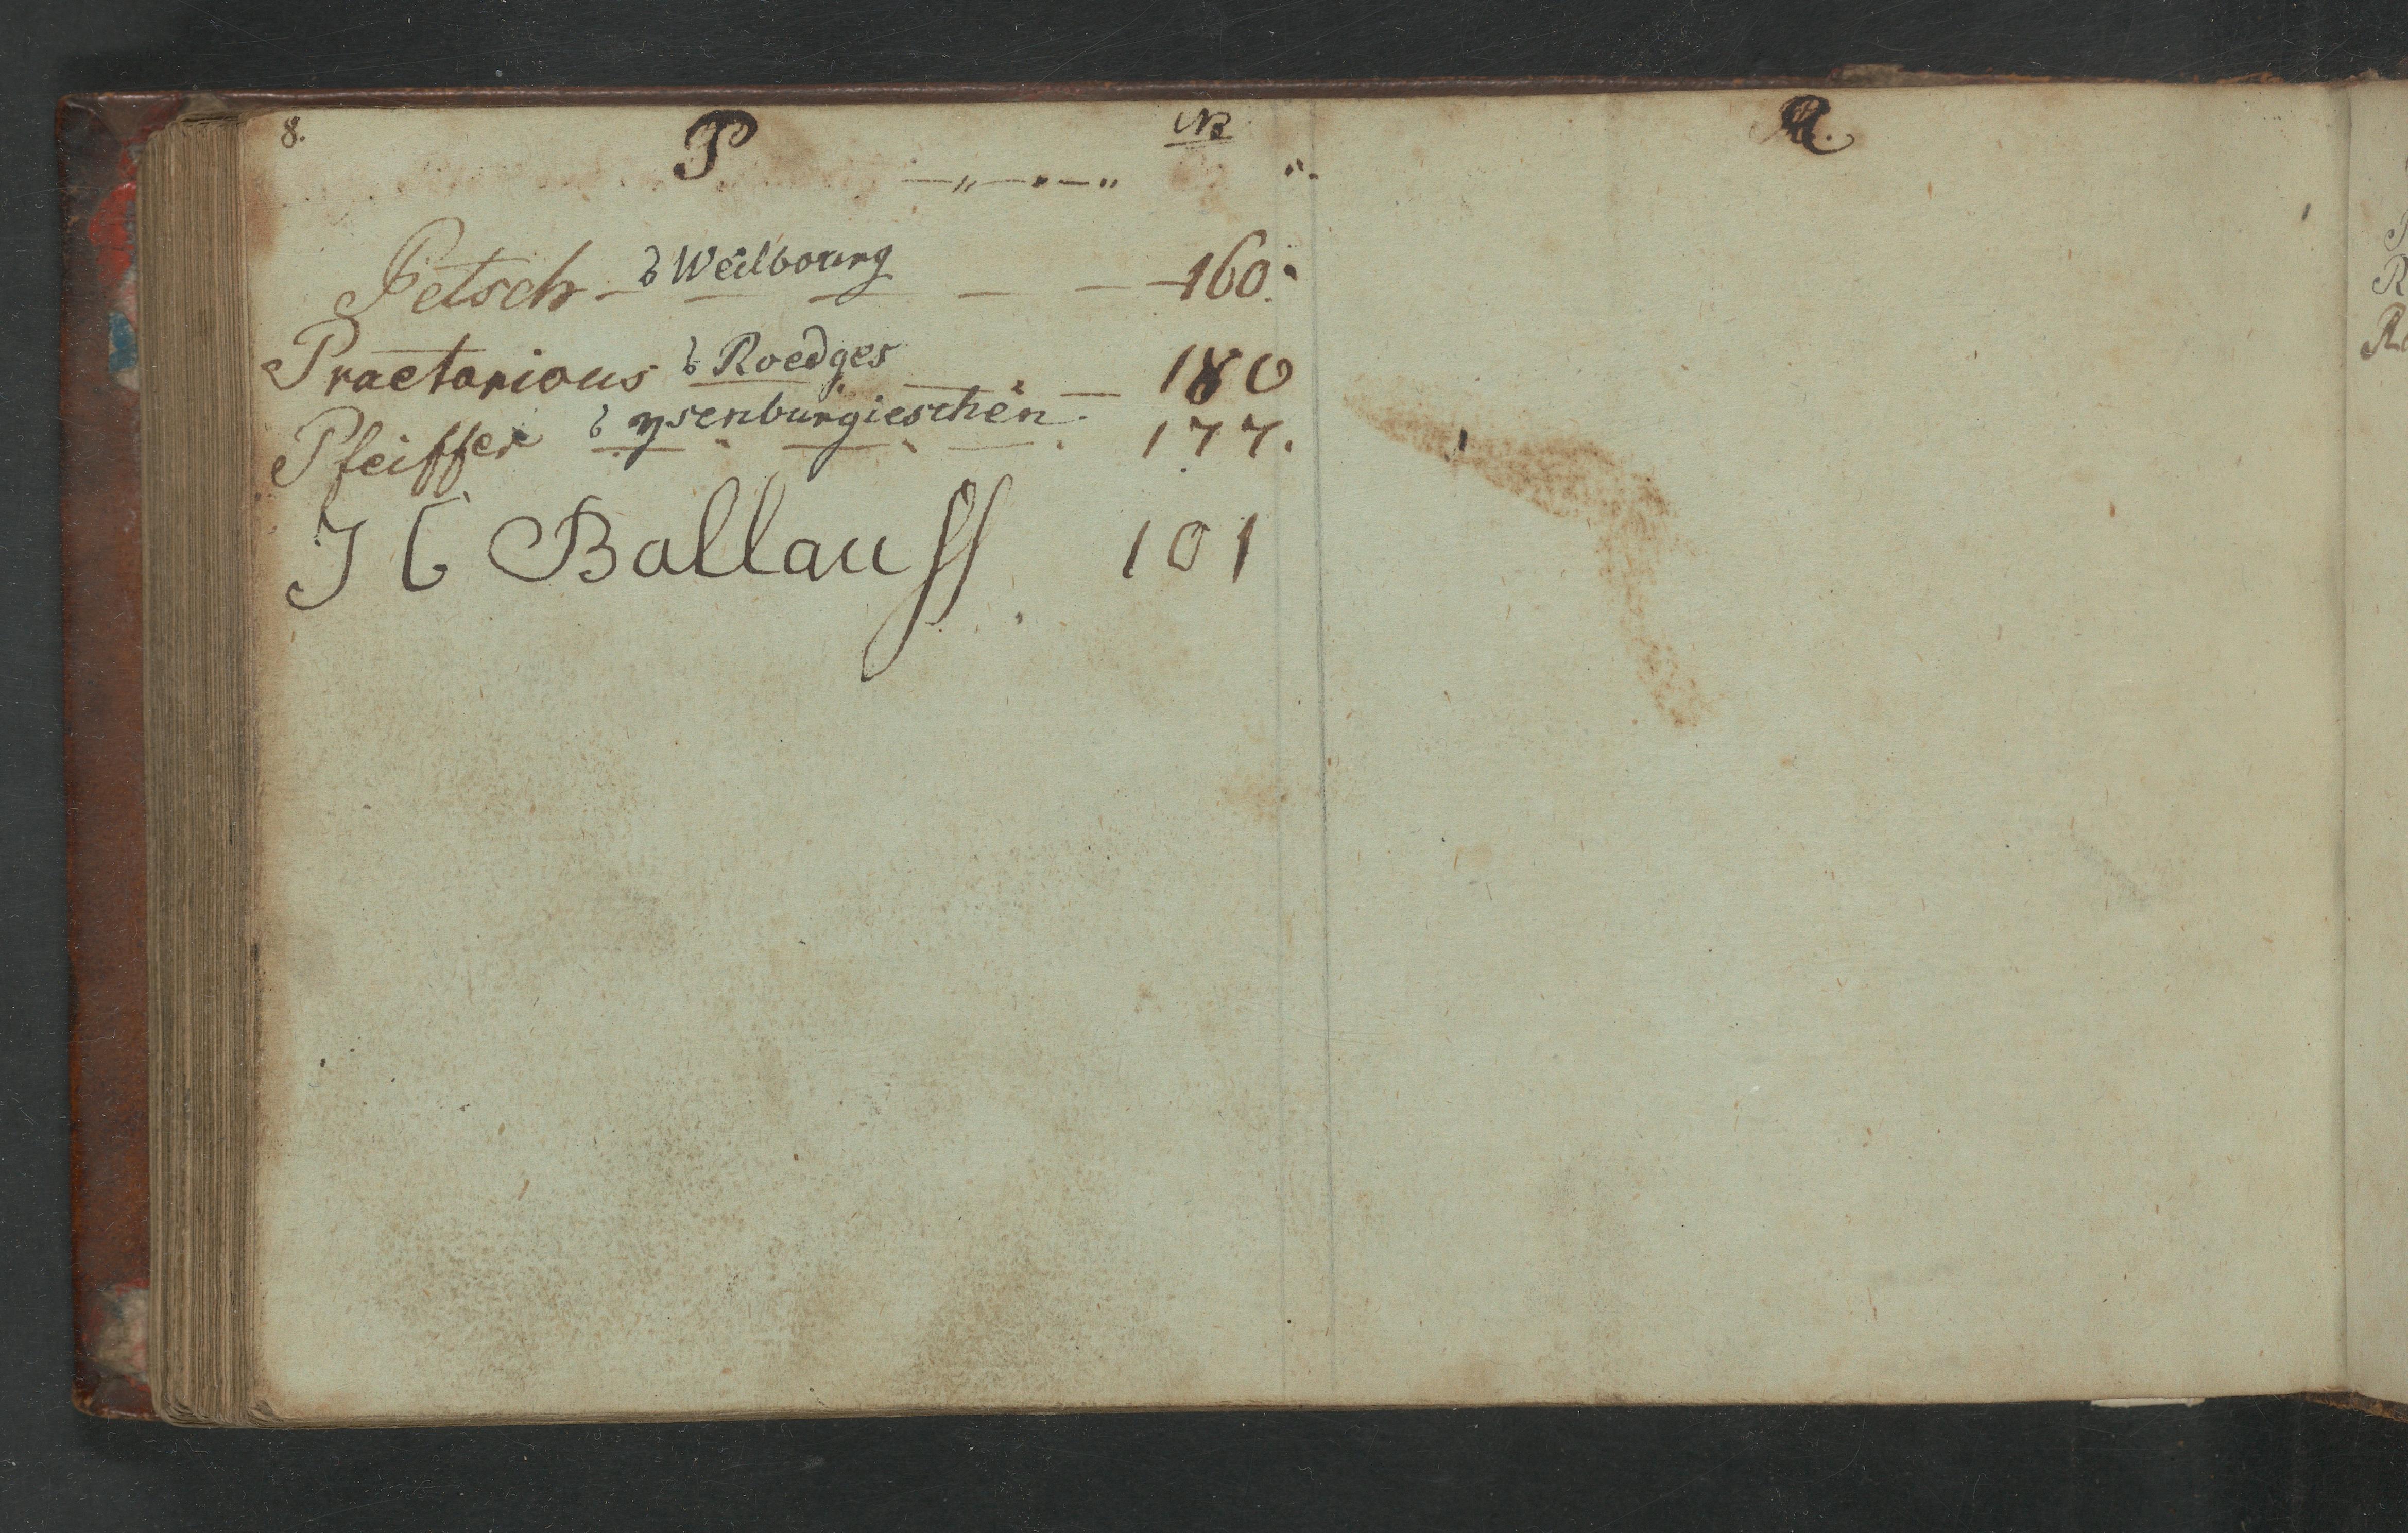 8. P NB
Petsch b Weilbourg 160.
Praetorious b Roedges 180
Pfeiffer b ysenburgieschen 177.
J C Ballauff 101
R